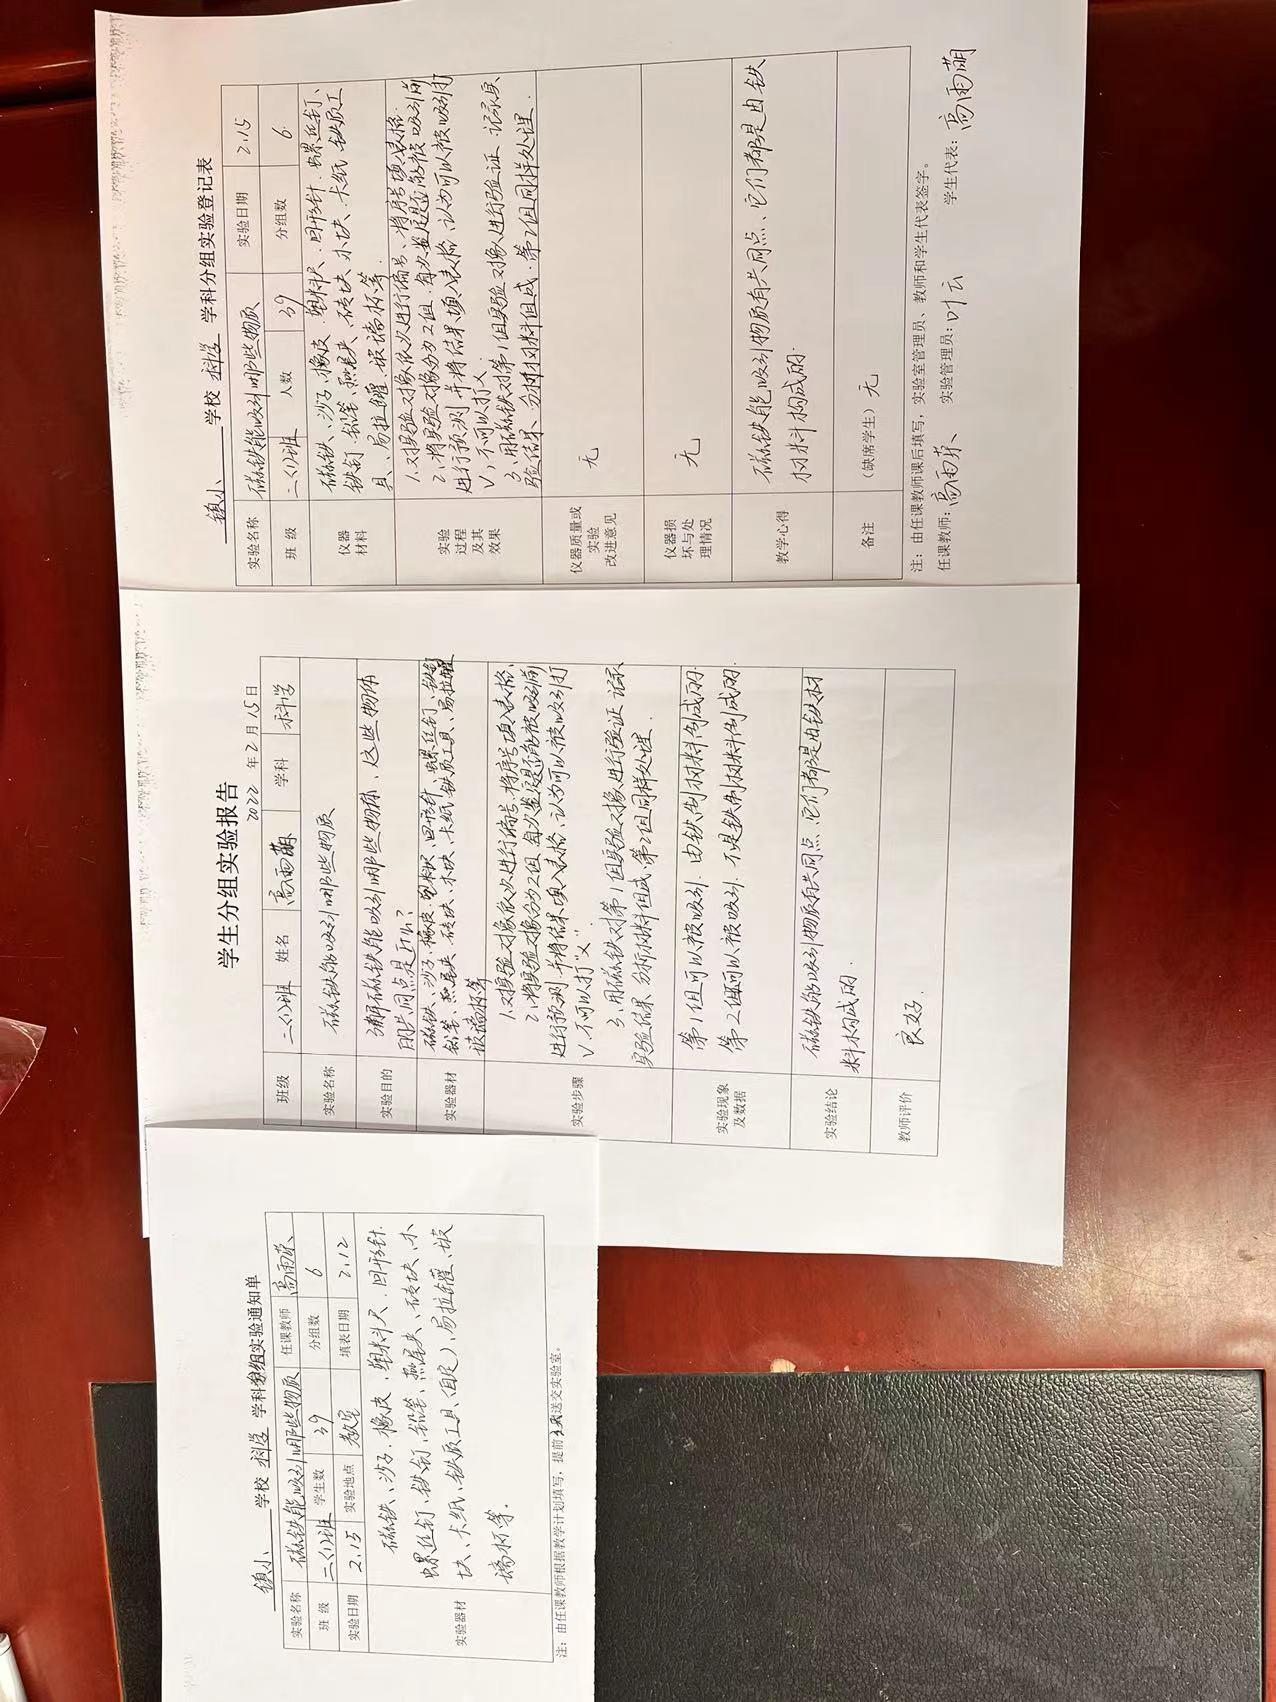 镇小 学校 科学 学科分组实验通知单
实验名称 磁铁能吸引哪些物质 任课教师
班 级 二(1)班 学生数 39 分组数 6
实验日期 2.15 实验地点 教室 填表日期 2.12
实验器材
磁铁、沙子、橡皮、塑料尺、回形针、
螺丝钉、铁钉、铅笔、燕尾夹、砖块、木
块、卡纸、铁质工具(自定)、易拉罐、玻
璃杯等.
注：由任课教师根据教学计划填写，提前3天送交实验室。
学生分组实验报告
2022 年2月15日
班级 二(1)班 姓名 高雨萌 学科 科学
实验名称 磁铁能吸引哪些物质
实验目的
磁铁能吸引哪些物体、这些物体
的共同点是什么?
实验器材
磁铁、沙子、橡皮、塑料尺、回形针、螺丝钉、铁钉
铅笔、燕尾夹、砖块、木块、卡纸、铁质工具、易拉罐
玻璃杯等
实验步骤
1.对实验对象依次进行编号、将序号填入表格.
2.将实验对象分为2组.每次鉴定是否能被吸引前
进行预测.并将结果填入表格.认为可以被吸引打
√.不可以打"×".
3.用磁铁对第1组实验对象进行验证.记录
实验结果.分析材料组成.第2组同样处理.
实验现象
及数据
第1组可以被吸引.由铁制材料制成的.
第2组可以被吸引.不是铁制材料制成的.
实验结论
磁铁能吸引物质有共同点.它们都是由铁材
料构成的.
教师评价 良好.
镇小 学校 科学 学科分组实验登记表
实验名称 磁铁能吸引哪些物质 实验日期 2.15
班 级 二(1)班 人数 39 分组数 6
仪器
材料
磁铁、沙子、橡皮、塑料尺、回形针、螺丝钉、
铁钉、铅笔、燕尾夹、砖块、木块、卡纸、铁质工
具、易拉罐、玻璃杯等.
实验
过程
及其
效果
1.对实验对象依次进行编号、将序号填入表格.
2.将实验对象分为2组.每次鉴定是否能被吸引前
进行预测.并将结果填入表格.认为可以被吸引打
√,不可以打×.
3.用磁铁对第1组实验对象进行验证.记录实
验结果、分析材料组成.第2组同样处理.
仪器质量或
实验
改进意见
无
仪器损
坏与处
理情况
无
教学心得
磁铁能吸引物质有共同点、它们都是由铁
材料构成的.
备注 (缺席学生) 无
注：由任课教师课后填写，实验室管理员、教师和学生代表签字。
任课教师: 实验管理员:叶云 学生代表:高雨萌